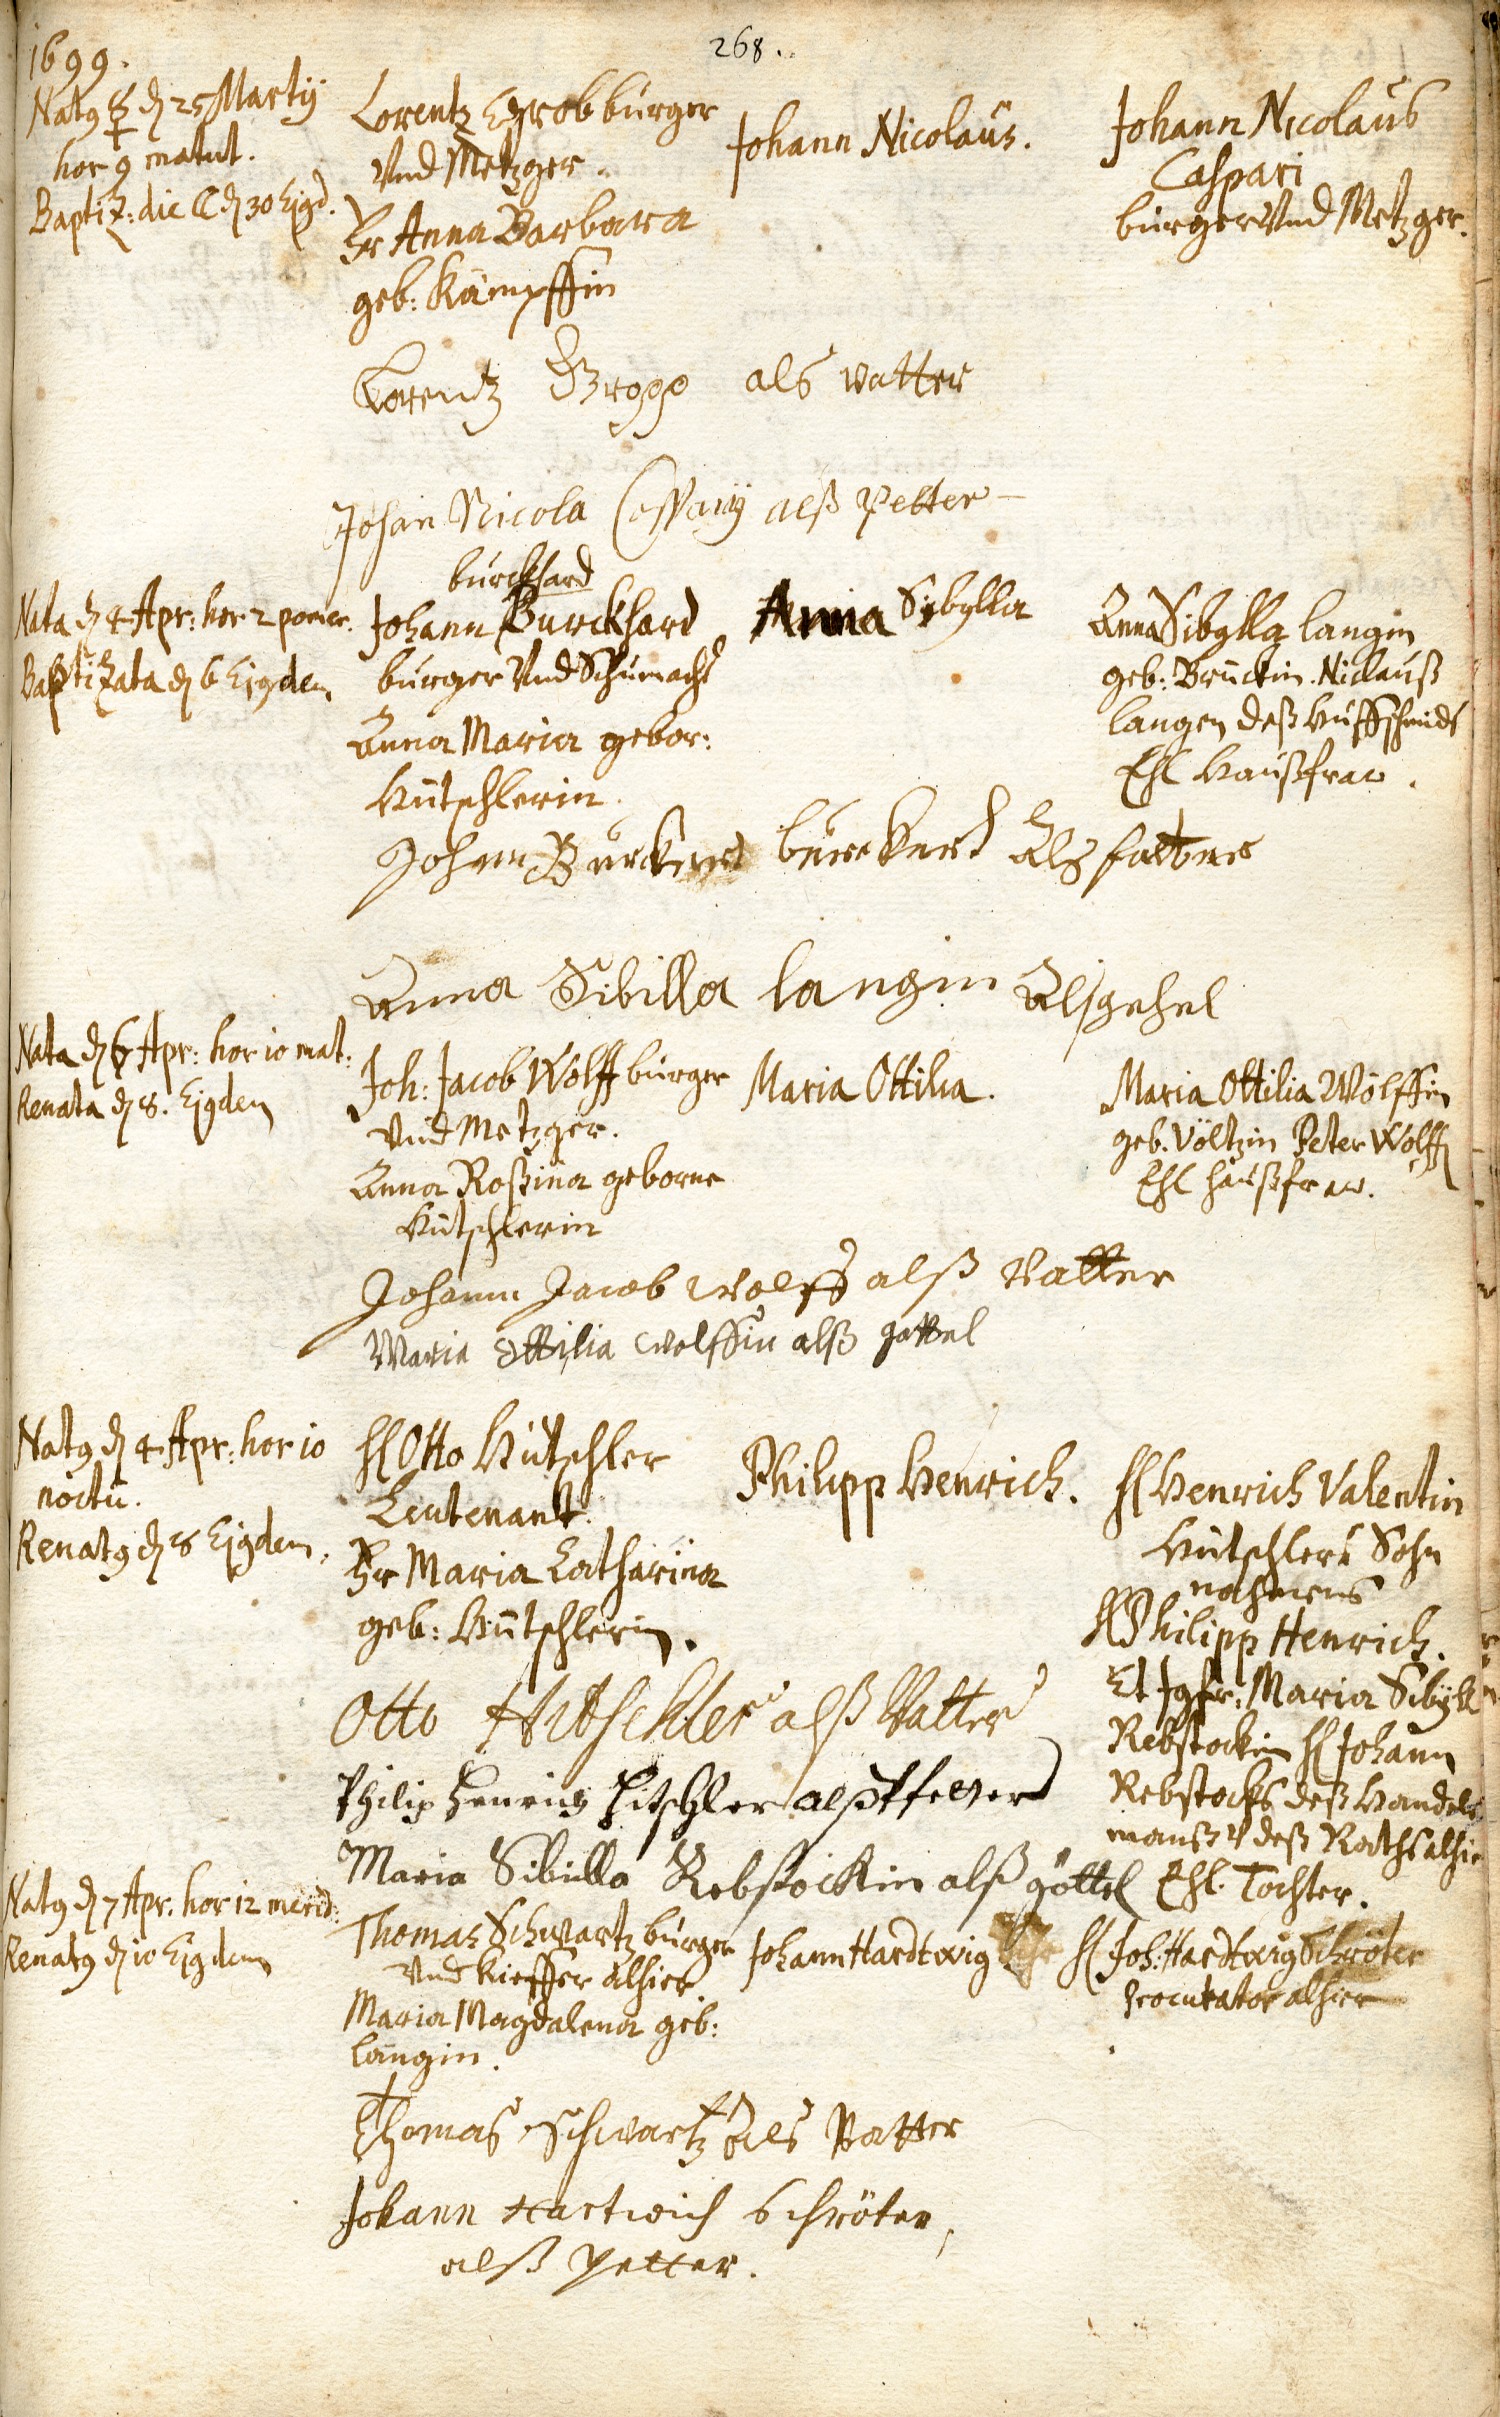 268.
1699.
Natg ☿ d 25 Martij
hor 9 matut.
Baptiz: die ☾ d 30 Ejgd.
Lorentz Grob burger
Vnd Metzger.
Fr Anna Barbara
geb: Kämpffin
Johann Nicolaus.
Johann Nicolaus
Caspari
burger Vnd Metzger.
Lorentz Gropp als vatter
Johan Nicola alß Petter
Nata d 4 Apr: hor 2 pomer.
Baptizata d 6 Ejgdem
burckhard
Johann Burckhard
burger Vnd Schumachr
Anna Maria gebor:
Hütschlerin.
Anna Sibylla
Anna Sibylla Langin
geb: Brückin Niclauß
Langen deß Huffschmids
Ehl Haußfraw.
Johann Burckard burckard Als fatter
Anna Sibilla Langin Als gehel
Nata d 6 Apr: hor 10 mat:
Renata d 8. Ejgdem
Joh: Jacob Wolff burger
Vnd Metzger.
Anna Roßina geborne
Hütschlerin
Maria Ottilia.
Maria Ottilia Wölffin
geb. Völtzin Peter Wolffs
Ehl haußfraw.
Johann Jacob Wolff alß Vatter
Maria Ottilia Wolffin alß gottel
Natg d 4 Apr: hor 10
noctu.
Renatg d 8 Ejgdem.
H Otto Hütschler
Leutenant.
Fr Maria Catharina
geb: Hütschlerin.
Philipp Henrich.
H Henrich Valentin
Hütschlers Sohn
nahmens
H Philipp Henrich.
Et Jgfr: Maria Sibyll
Rebstockin H Johann
Rebstocks deß Handels
manß v deß Raths alhie
Ehl. Tochter.
Otto Hitschler alß Vatter
Philip Henrich Hitschler alß Pfetter
Maria Sibilla Rebstöckin alß göttel
Natg d 7 Apr. hor 12 merid:
Renatg d 10 Ejgdem
Thomas Schwartz burger
Vnd Kieffer alhier
Maria Magdalena geb:
Langin.
Johann Hardtwig
H Joh: Hardtwig Schröter
Procurator alhier
Thomas Schwartz Als Vatter
Johann Hartwich Schröter,
alß Petter.